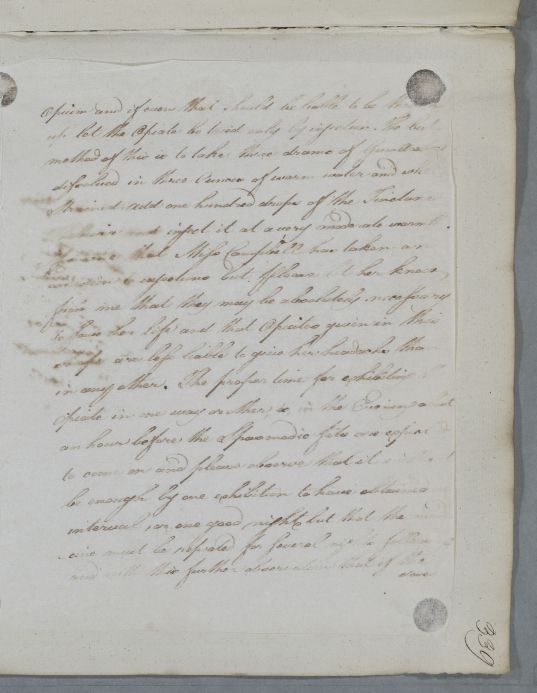 Opium and if even that should be liable to be thrown
up let the Opiate be tried only by injection. The best
method of this is to take three drams of Gum Arabic
dissolved in three Ounces of warm water and when
strained add one hundred drops of the Tincture
and inject it at a very moderate warmth.
that Miss Campbell has taken an
aversion to injections but please let her know
from me that they may be absolutely necessary
to save her life and that Opiates given in this
way are less liable to give her headache than
in any other. The proper time for exhibiting
Opiate in one way or other is in the Evening about
an hour before the Spasmodic fits are expected
to come on and please observe that it will not
be enough by one exhibition to have obtained
interval or one good night but that the
must be repeated for several nights following
and with this further observation that if the
dose
339